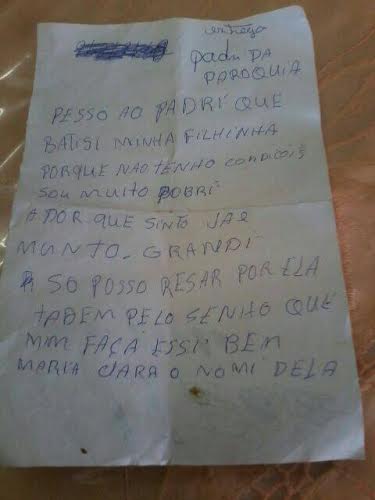 entrego
padri DA
PAROQUIA
PESSO AO PADRI QUE
BATISI MINHA FILHINHA
PORQUE NÃO TENHO CONDICOIS
SOU MUITO POBRI
A DOR QUE SINTO JAE
MUNTO. GRANDI
SO POSSO RESAR POR ELA
TADEM PELO SENHO QUE
MIM FAÇA ESSI BEM
MARIA CLARA O NOMI DELA